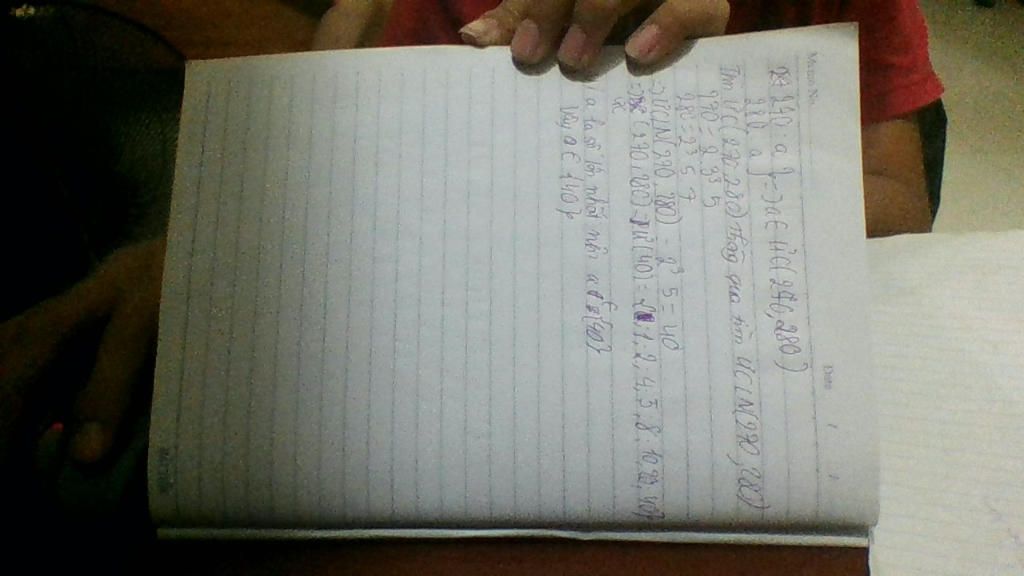 Memo No.
Date / /
270 : a } => a ∈ ƯC(270, 280)
280 a
Tìm ƯC(270, 280) thông qua tìm ƯCLN(270, 280)
270 = 2 3³ 5
280 = 2³ 5 7
=> ƯCLN(270, 280) = 2³ 5 = 40
=> ƯC(270, 280) = Ư(40) = 1; 2; 4; 5; 8; 10; 20; 40}
a là số lớn nhất nên a ∈ {40}
Vậy a ∈ {40}